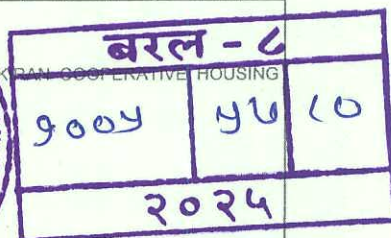 बरल - ८
KIRAN COOPERATIVE HOUSING
१००५ ५७ ८०
२०२५